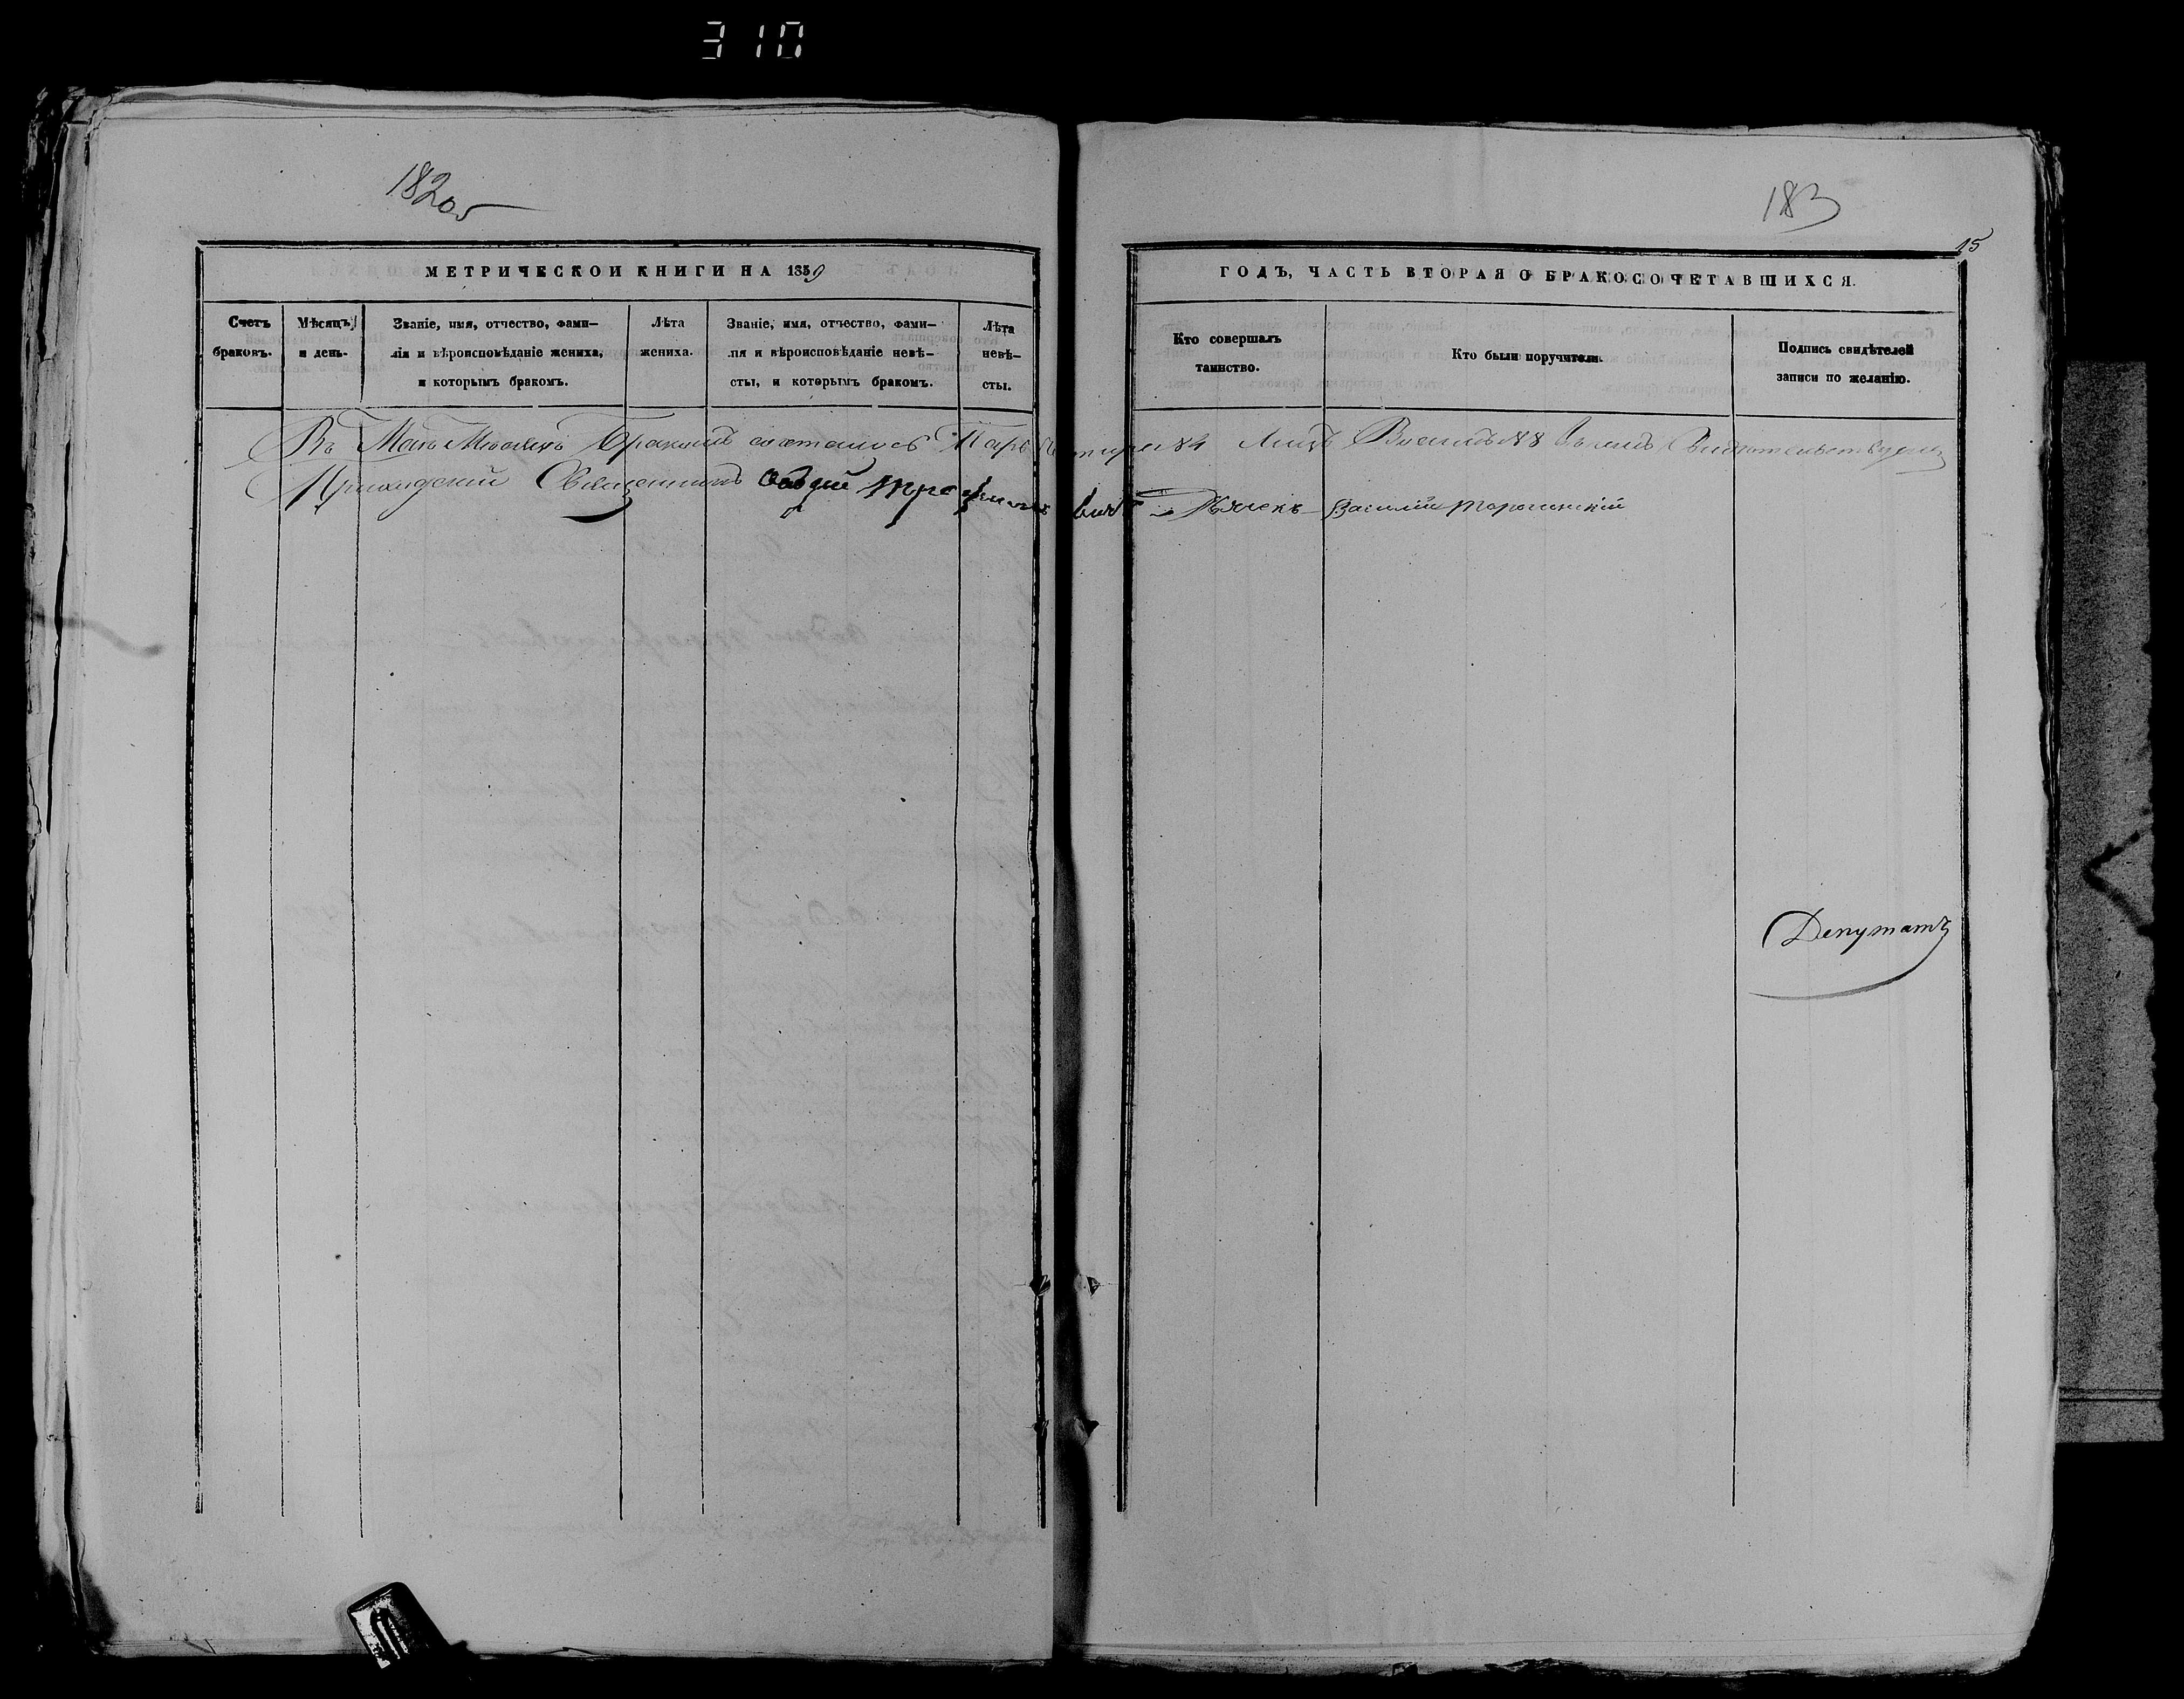 310
182об
183
15
МЕТРИЧЕСКОЙ КНИГИ НА 1859
ГОДЪ, ЧАСТЬ ВТОРАЯ О БРАКОСОЧЕТАВШИХСЯ.
Счетъ браковъ.
Мѣсяцъ и день.
Званіе, имя, отчество, фами-
лія и вѣроисповѣданіе жениха,
и которымъ бракомъ.
Лѣта
жениха.
Званіе, имя, отчество, фами-
лія и вѣроисповѣданіе невѣ-
сты, и которымъ бракомъ.
Лѣта
невѣ-
сты.
Кто совершалъ
таинство.
Кто были поручители.
Подпись свидѣтелей
записи по желанію.
Въ Маѣ Мѣсяцѣ Бракомъ сочталось Паръ четыре 4 Лицъ Восемь 8 Въ чемъ Свидѣтельствуемъ
Приходскій Священникъ Дьячекъ Василій
Депутатъ